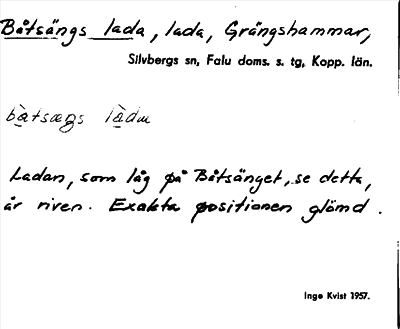 Båtsängs lada, lada, Grängshammar,
Silvbergs sn, Falu doms. s. tg, Kopp. län.
bàtsæŋs làda
Ladan, som låg på Båtsänget, se detta,
är riven. Exakta positionen glömd.
Inge Kvist 1957.